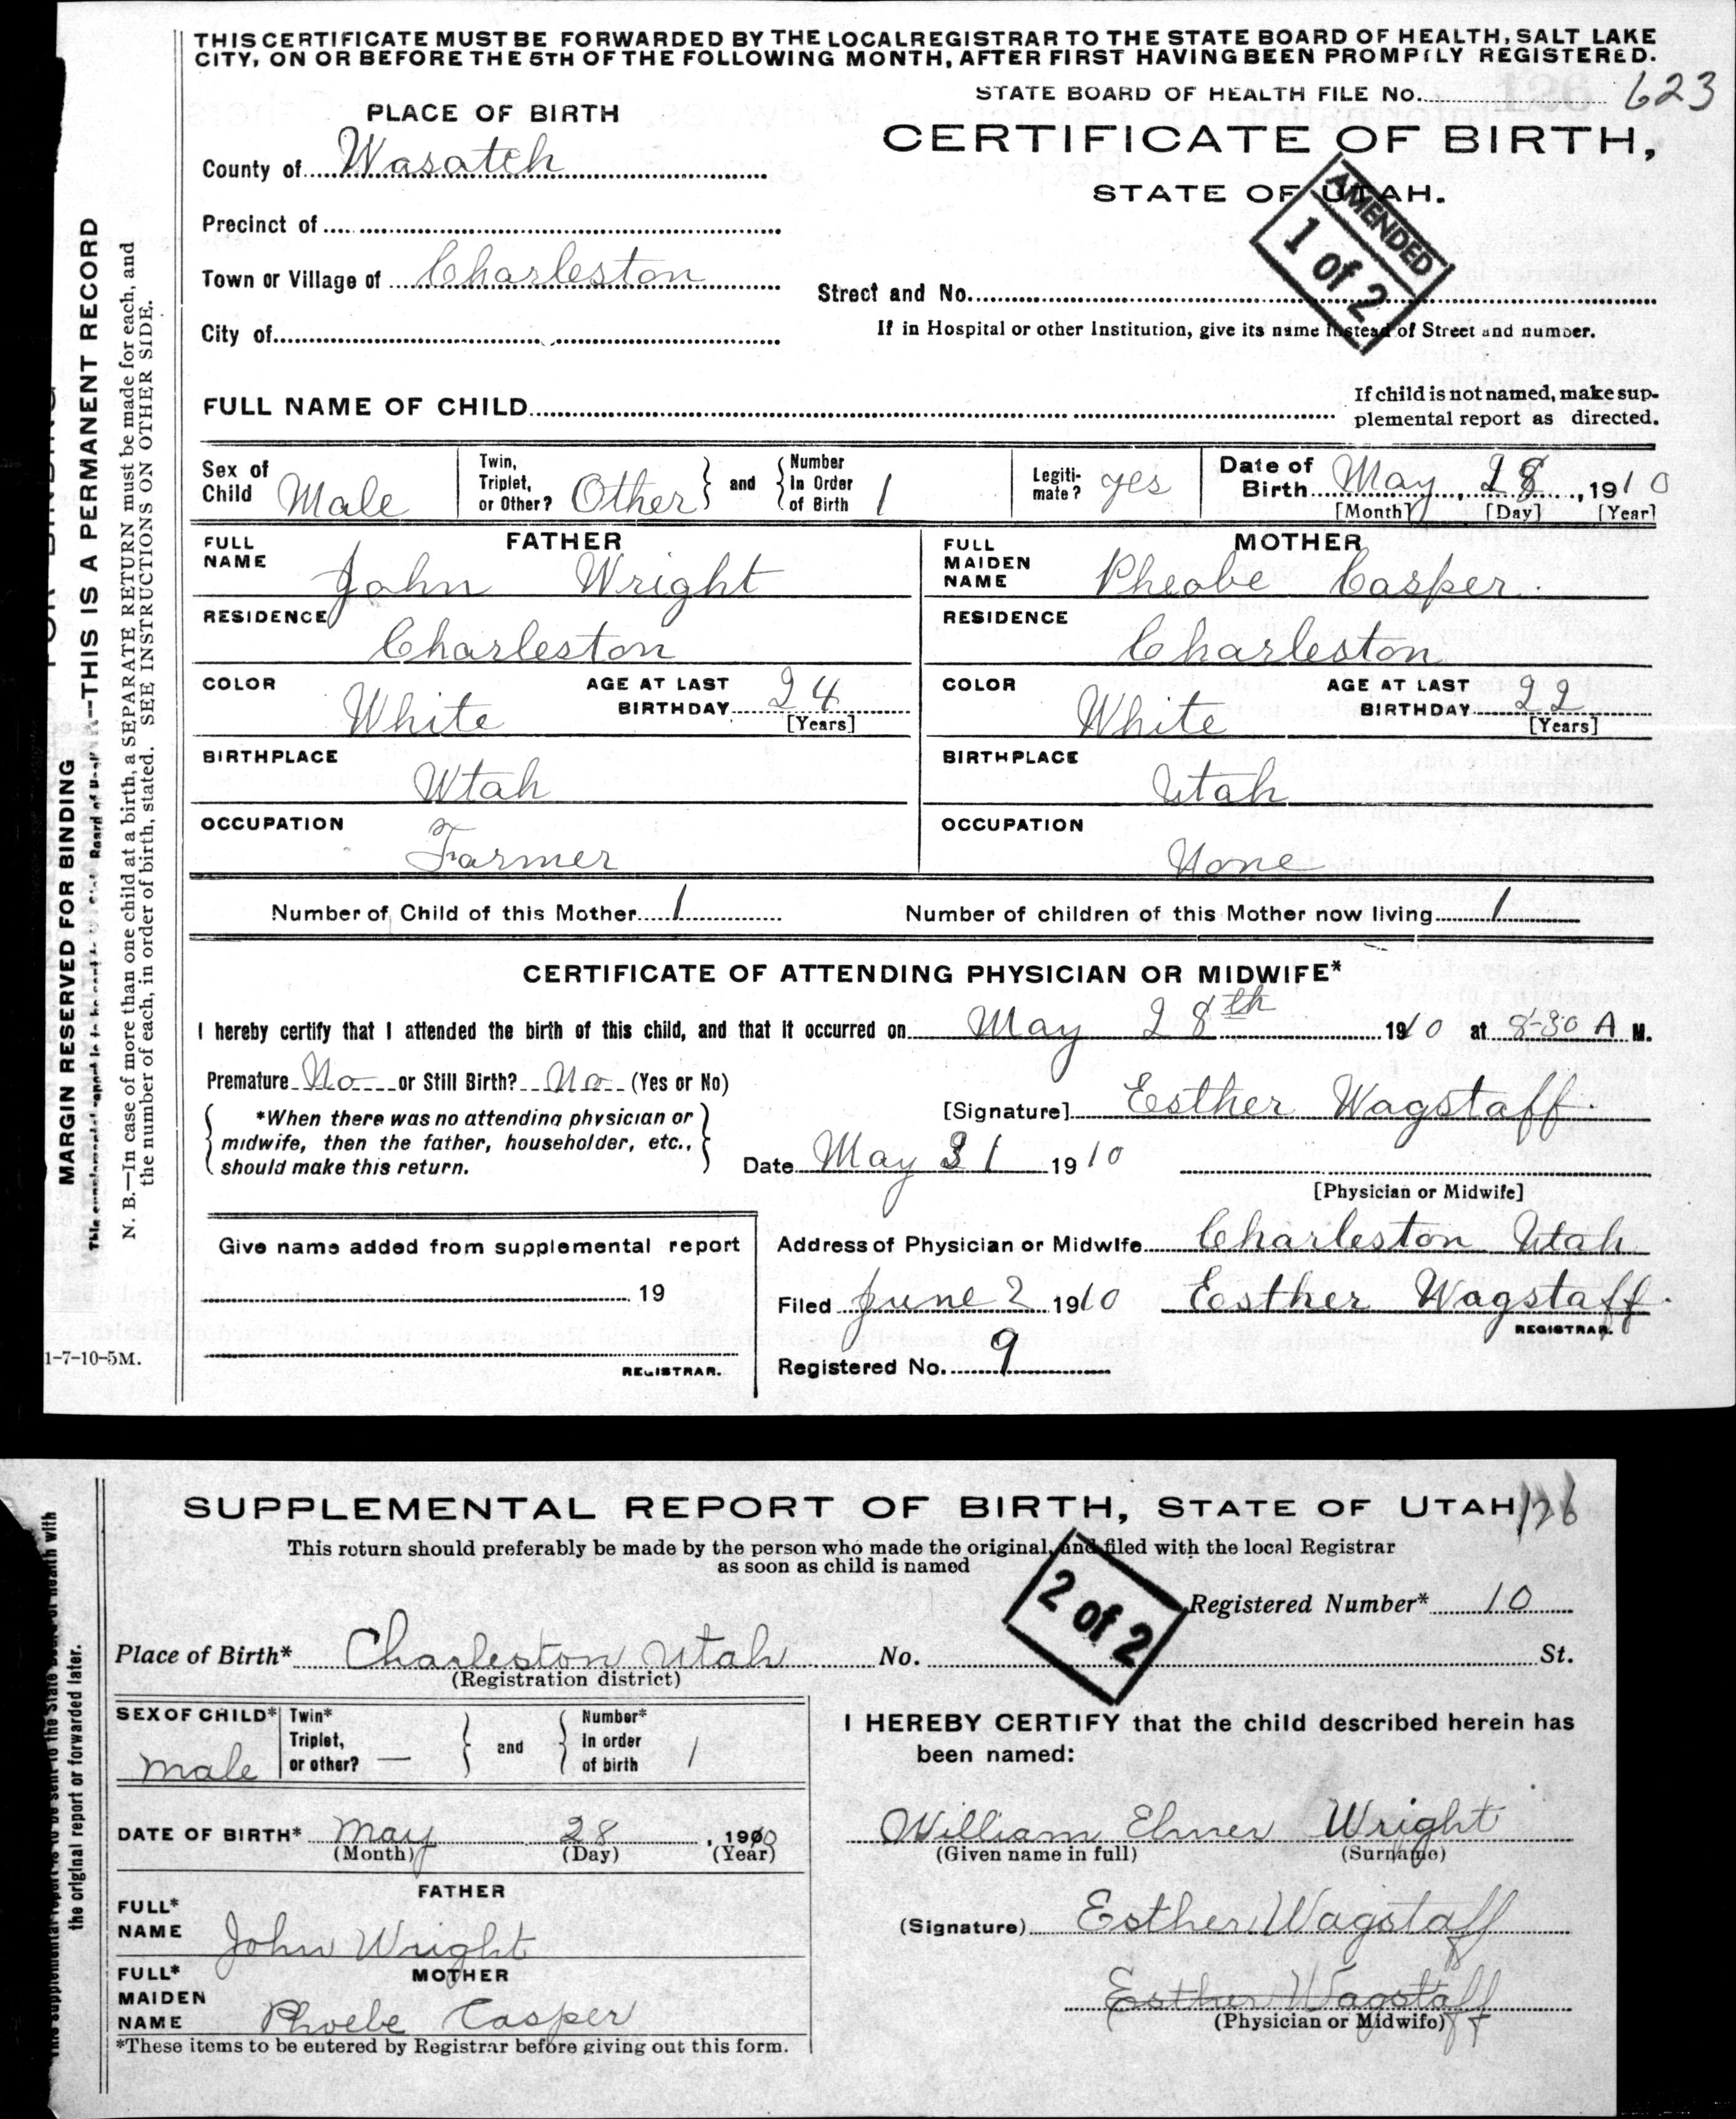 THIS CERTIFICATE MUST BE FORWARDED BY THE LOCAL REGISTRAR TO THE STATE BOARD OF HEALTH, SALT LAKE
CITY, ON OR BEFORE THE 5TH OF THE FOLLOWING MONTH, AFTER FIRST HAVING BEEN PROMPTLY REGISTERED.
STATE BOARD OF HEALTH FILE No. 623
PLACE OF BIRTH
CERTIFICATE OF BIRTH,
County of Wasatch
STATE OF UTAH.
AMENDED
1 of 2
Precinct of
Town or Village of Charleston
Street and No.
City of
If in Hospital or other Institution, give its name instead of Street and number.
FULL NAME OF CHILD
If child is not named, make sup-
plemental report as directed.
Sex of Child Male
Twin, Triplet, or Other? Other and Number In Order of Birth 1
Legiti-mate? yes
Date of Birth May, 28, 1910
[Month] [Day] [Year]
FATHER
FULL NAME John Wright
RESIDENCE Charleston
COLOR White AGE AT LAST BIRTHDAY 24 [Years]
BIRTHPLACE Utah
OCCUPATION Farmer
MOTHER
FULL MAIDEN NAME Pheobe Casper
RESIDENCE Charleston
COLOR White AGE AT LAST BIRTHDAY 22 [Years]
BIRTHPLACE Utah
OCCUPATION None
Number of Child of this Mother 1 Number of children of this Mother now living 1
CERTIFICATE OF ATTENDING PHYSICIAN OR MIDWIFE*
I hereby certify that I attended the birth of this child, and that it occurred on May 28th 1910 at 8-30 A M.
Premature No or Still Birth? No (Yes or No)
*When there was no attending physician or
midwife, then the father, householder, etc.,
should make this return.
[Signature] Esther Wagstaff
Date May 31 1910
[Physician or Midwife]
Give name added from supplemental report
19
REGISTRAR.
Address of Physician or Midwife Charleston Utah
Filed June 2 1910 Esther Wagstaff
REGISTRAR.
Registered No. 9
1-7-10-5M.
MARGIN RESERVED FOR BINDING
--THIS IS A PERMANENT RECORD
N. B.—In case of more than one child at a birth, a SEPARATE RETURN must be made for each, and
the number of each, in order of birth, stated. SEE INSTRUCTIONS ON OTHER SIDE.
SUPPLEMENTAL REPORT OF BIRTH, STATE OF UTAH 126
This return should preferably be made by the person who made the original, and filed with the local Registrar
as soon as child is named
2 of 2
Registered Number* 10
Place of Birth* Charleston Utah No. St.
(Registration district)
SEX OF CHILD* male
Twin* Triplet, or other? — and Number* In order of birth 1
DATE OF BIRTH* May 28, 1910
(Month) (Day) (Year)
FATHER
FULL* NAME John Wright
MOTHER
FULL* MAIDEN NAME Phoebe Casper
*These items to be entered by Registrar before giving out this form.
I HEREBY CERTIFY that the child described herein has
been named:
William Elmer Wright
(Given name in full) (Surname)
(Signature) Esther Wagstaff
Esther Wagstaff
(Physician or Midwife)
the original report or forwarded later.